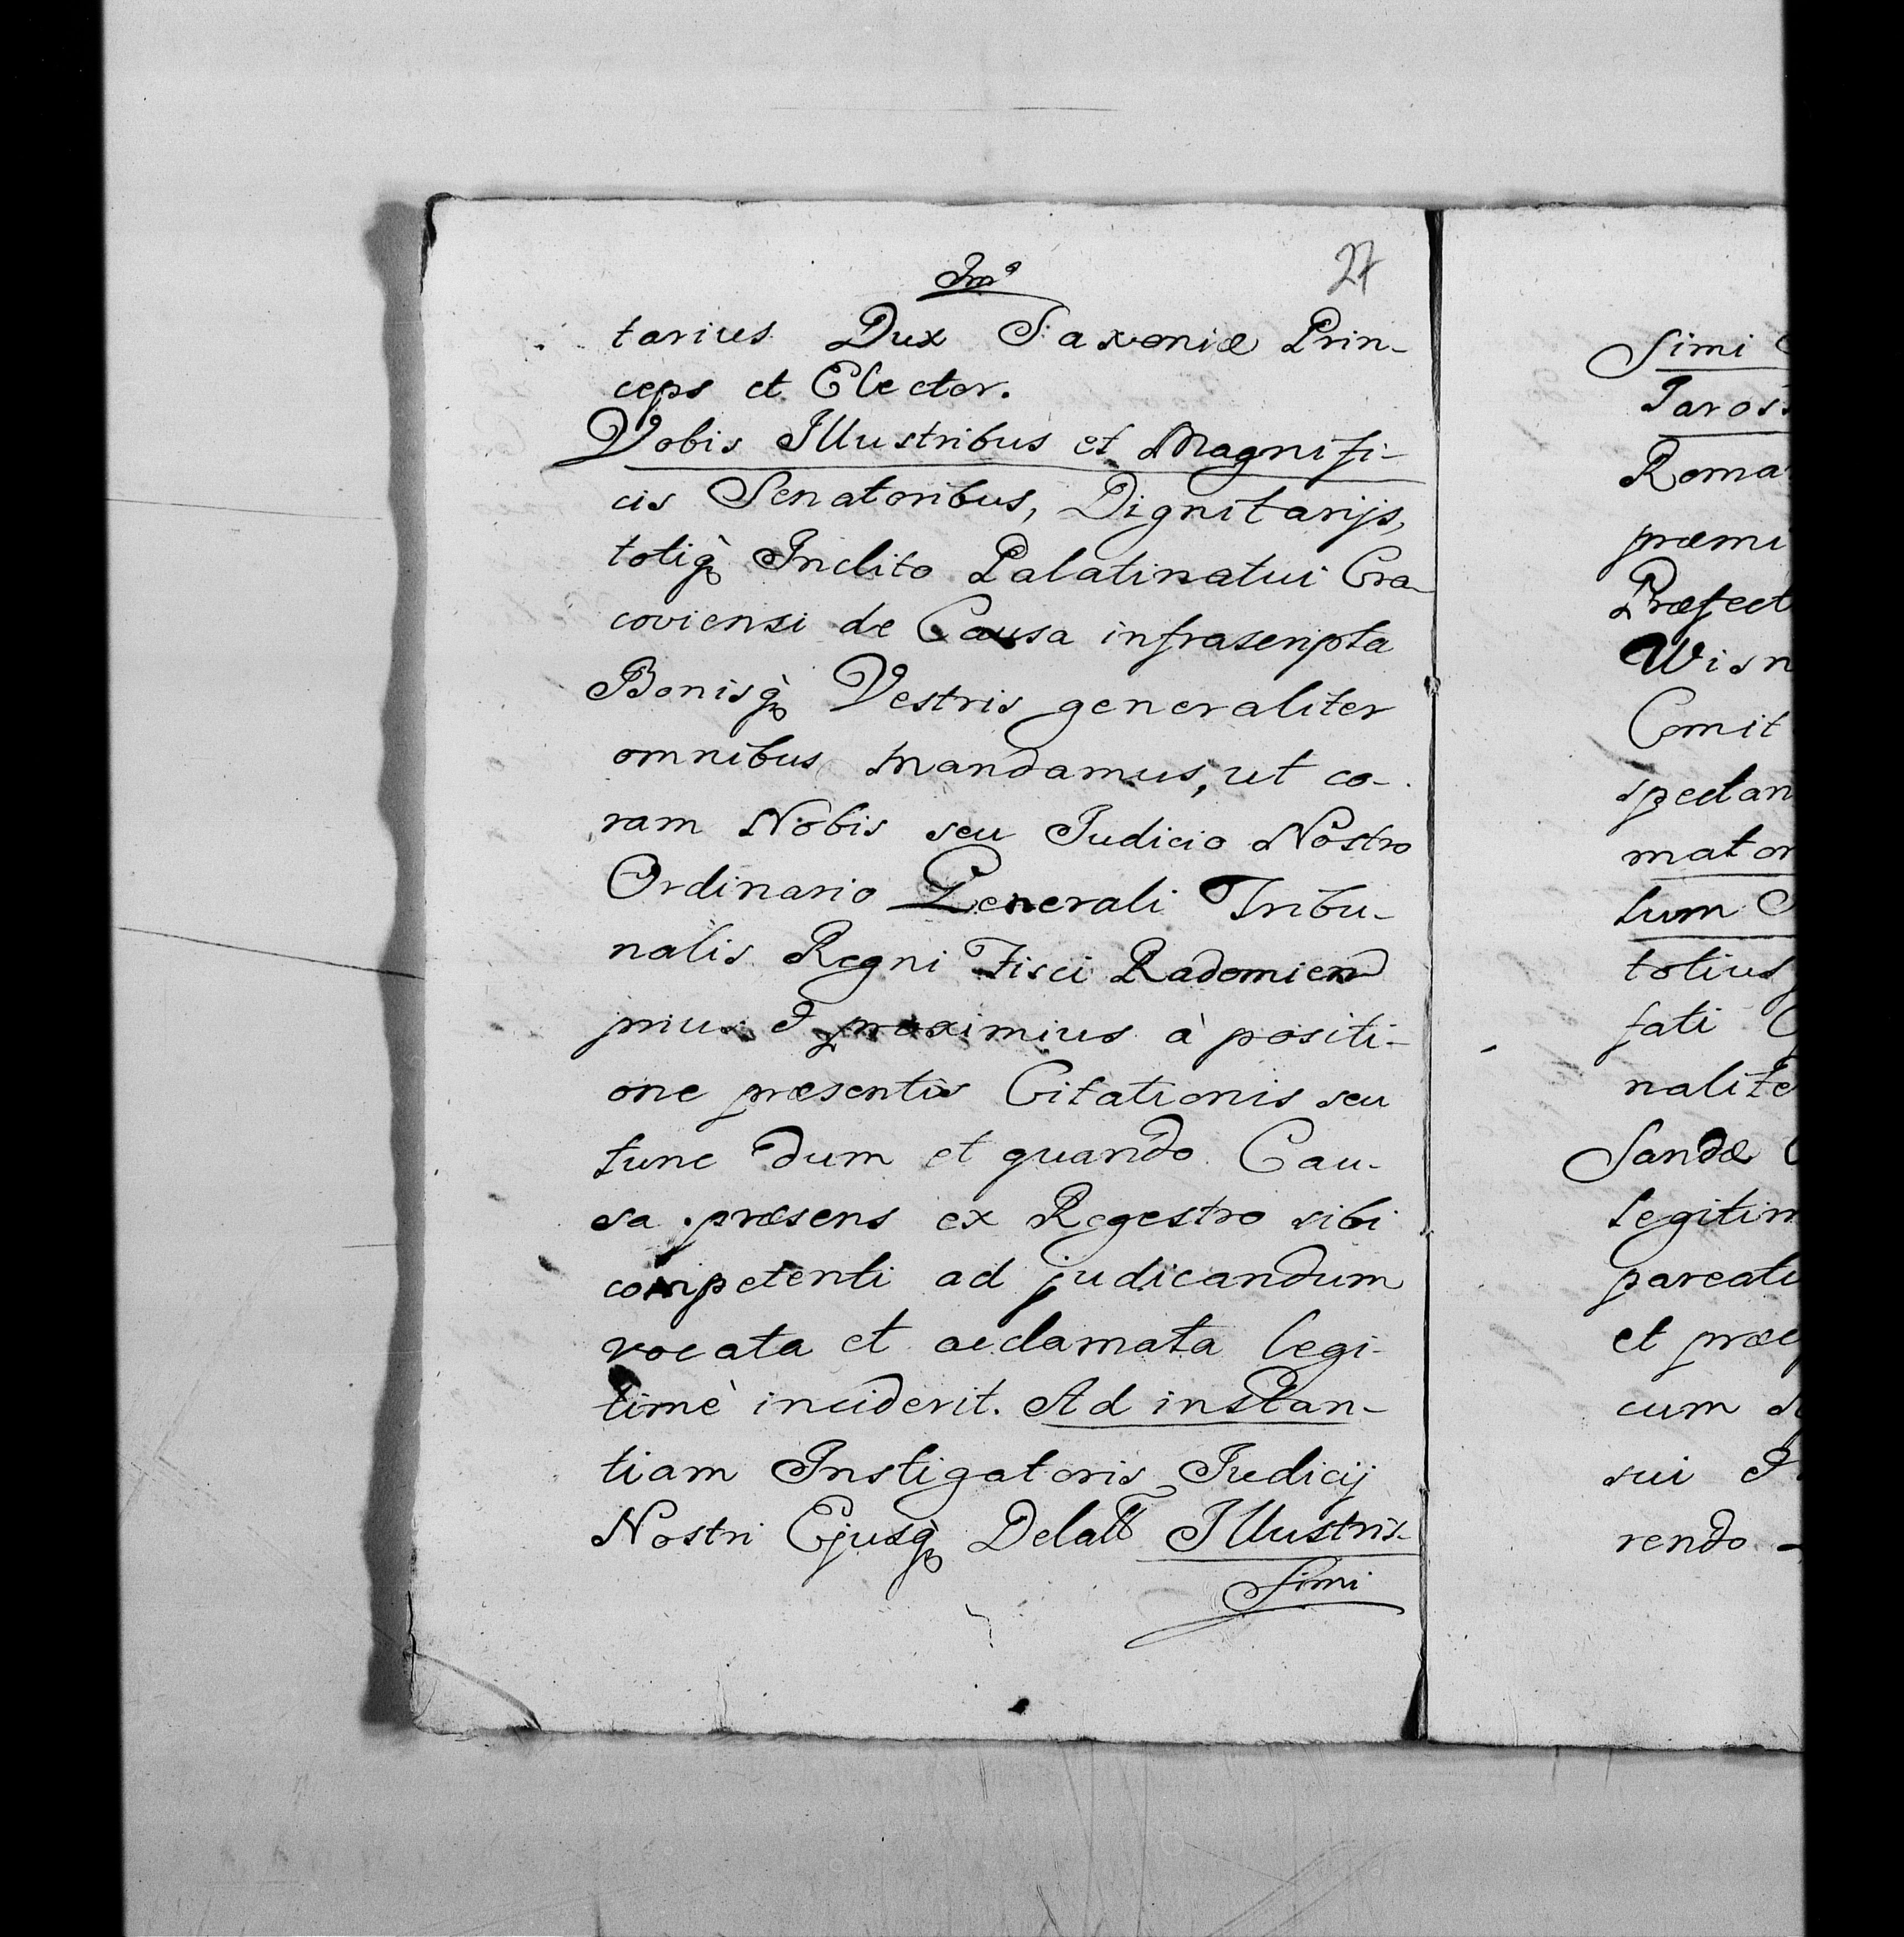 27
tarius Dux Saxoniæ Prin-
ceps et Elector.
Vobis Illustribus et Magnifi-
cis Senatoribus, Dignitarijs,
totiq̀ꝫ Inclito Palatinatui Cra-
coviensi de Causa infrascripta
Bonisq̀ꝫ Vestris generaliter
omnibus mandamus, ut co-
ram Nobis seu Judicio Nostro
Ordinario Generali Tribu-
nalis Regni Fisci Radomien
prius & proximius à positi-
one præsentis Citationis seu
tunc dum et quando Cau-
sa præsens ex Regestro sibi
competenti ad judicandum
vocata et acclamata legi-
timè inciderit. Ad instan-
tiam Instigatoris Judicij
Nostri Ejusq̀ꝫ Delatt Illustris-
simi
Simi
Jaros
Roma
præmi
Præfect
Wisn
Comit
spectan
mator
tum
totius
fati
nalite
Sandæ
legitim
pareati
et præ
cum
sui
rendo